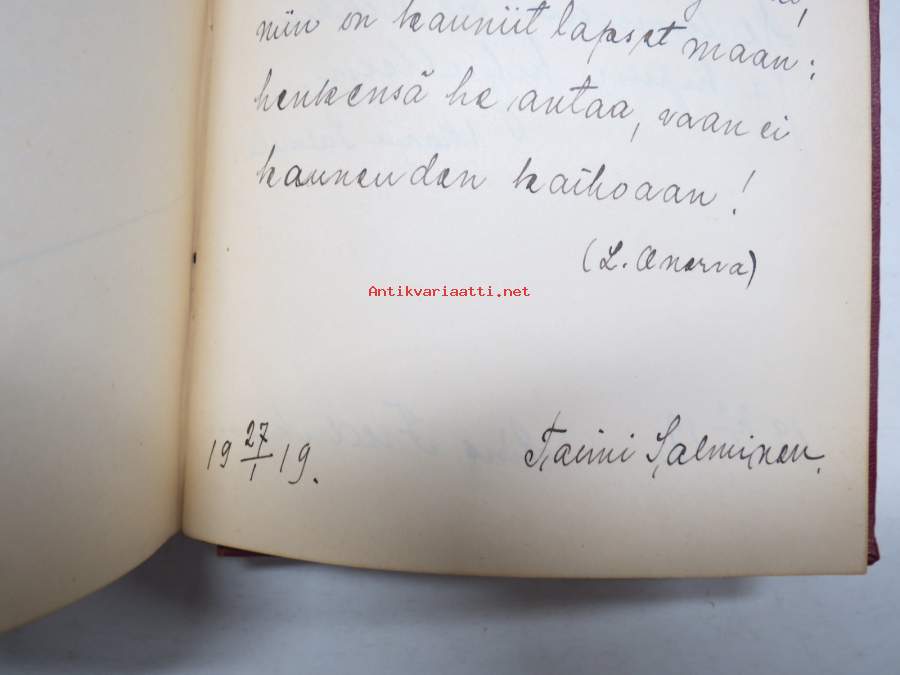 niin on kauniit lapset maan:
henkensä he antaa, vaan ei
kauneuden kaihoaan!
(L. Onerva)
Antikvariaatti.net
19 27/1 19.
Taimi Salminen.